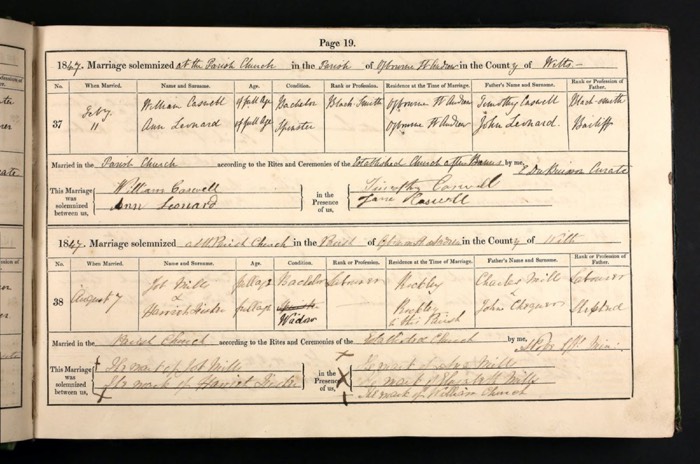 Page 19.
1847. Marriage solemnized at the Parish Church in the Parish of Ogbourne St Andrew in the County of Wilts
No. When Married. Name and Surname. Age. Condition. Rank or Profession. Residence at the Time of Marriage. Father's Name and Surname. Rank or Profession of Father.
37 Feby 11 William Caswell of full Age Bachelor Black Smith Ogbourne St Andrew Timothy Caswell Black-smith
Ann Leonard of full Age Spinster Ogbourne St Andrew John Leonard Bailiff
Married in the Parish Church according to the Rites and Ceremonies of the Established Church after Banns by me, Curate
This Marriage was solemnized between us, William Caswell in the Presence of us, Timothy Caswell
Ann Leonard Jane Caswell
1847. Marriage solemnized at the Parish Church in the Parish of in the County of Wilts
No. When Married. Name and Surname. Age. Condition. Rank or Profession. Residence at the Time of Marriage. Father's Name and Surname. Rank or Profession of Father.
38 August 7 Job Mills full age Bachelor Labourer Rockley Charles Mills Labourer
& Harriet full age Spinster Rockley John Shepherd
Widow in this Parish
Married in the Parish Church according to the Rites and Ceremonies of the Established Church by me,
This Marriage was solemnized between us, The mark of Job Mills in the Presence of us, The mark of Mills
The mark of Harriet The mark of Elizabeth Mills
The mark of William Church